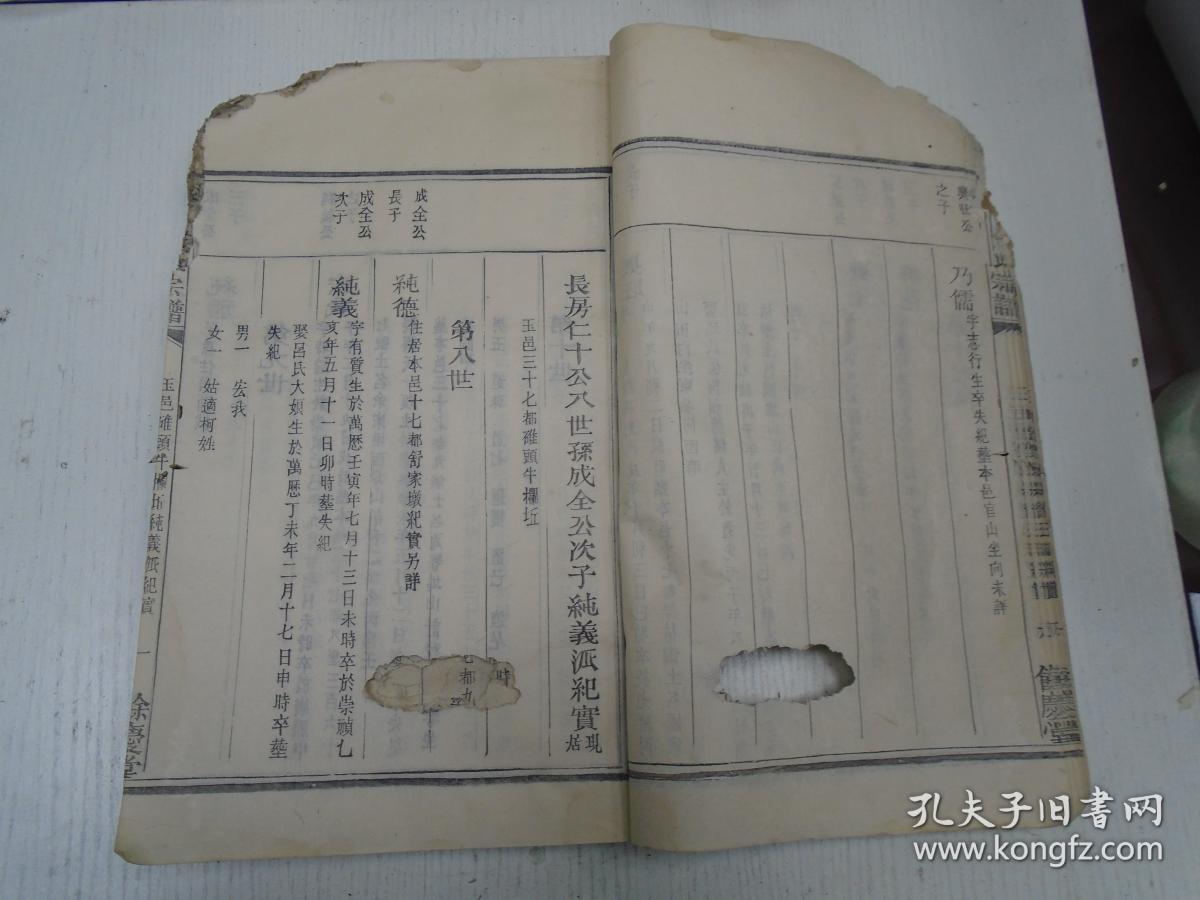 奧壯公
之子
乃儒
字志行生卒失紀塟本邑官山坐向未詳
長房仁十公八世孫成全公次子純義派紀實
現居
玉邑三十七都碓頭牛欄坵
第八世
成全公
長子
純德
住居本邑十七都舒家墩紀實另詳
成全公
次子
純義
字有質生於萬歷壬寅年七月十三日未時卒於崇禎乙
亥年五月十一日卯時塟失紀
娶呂氏大娘生於萬歷丁未年二月十七日申時卒塟
失紀
男一 宏我
女一 姑適柯姓
宗譜
玉邑碓頭牛欄坵純義派紀實
一
餘慶堂
孔夫子旧书网
www.kongfz.com